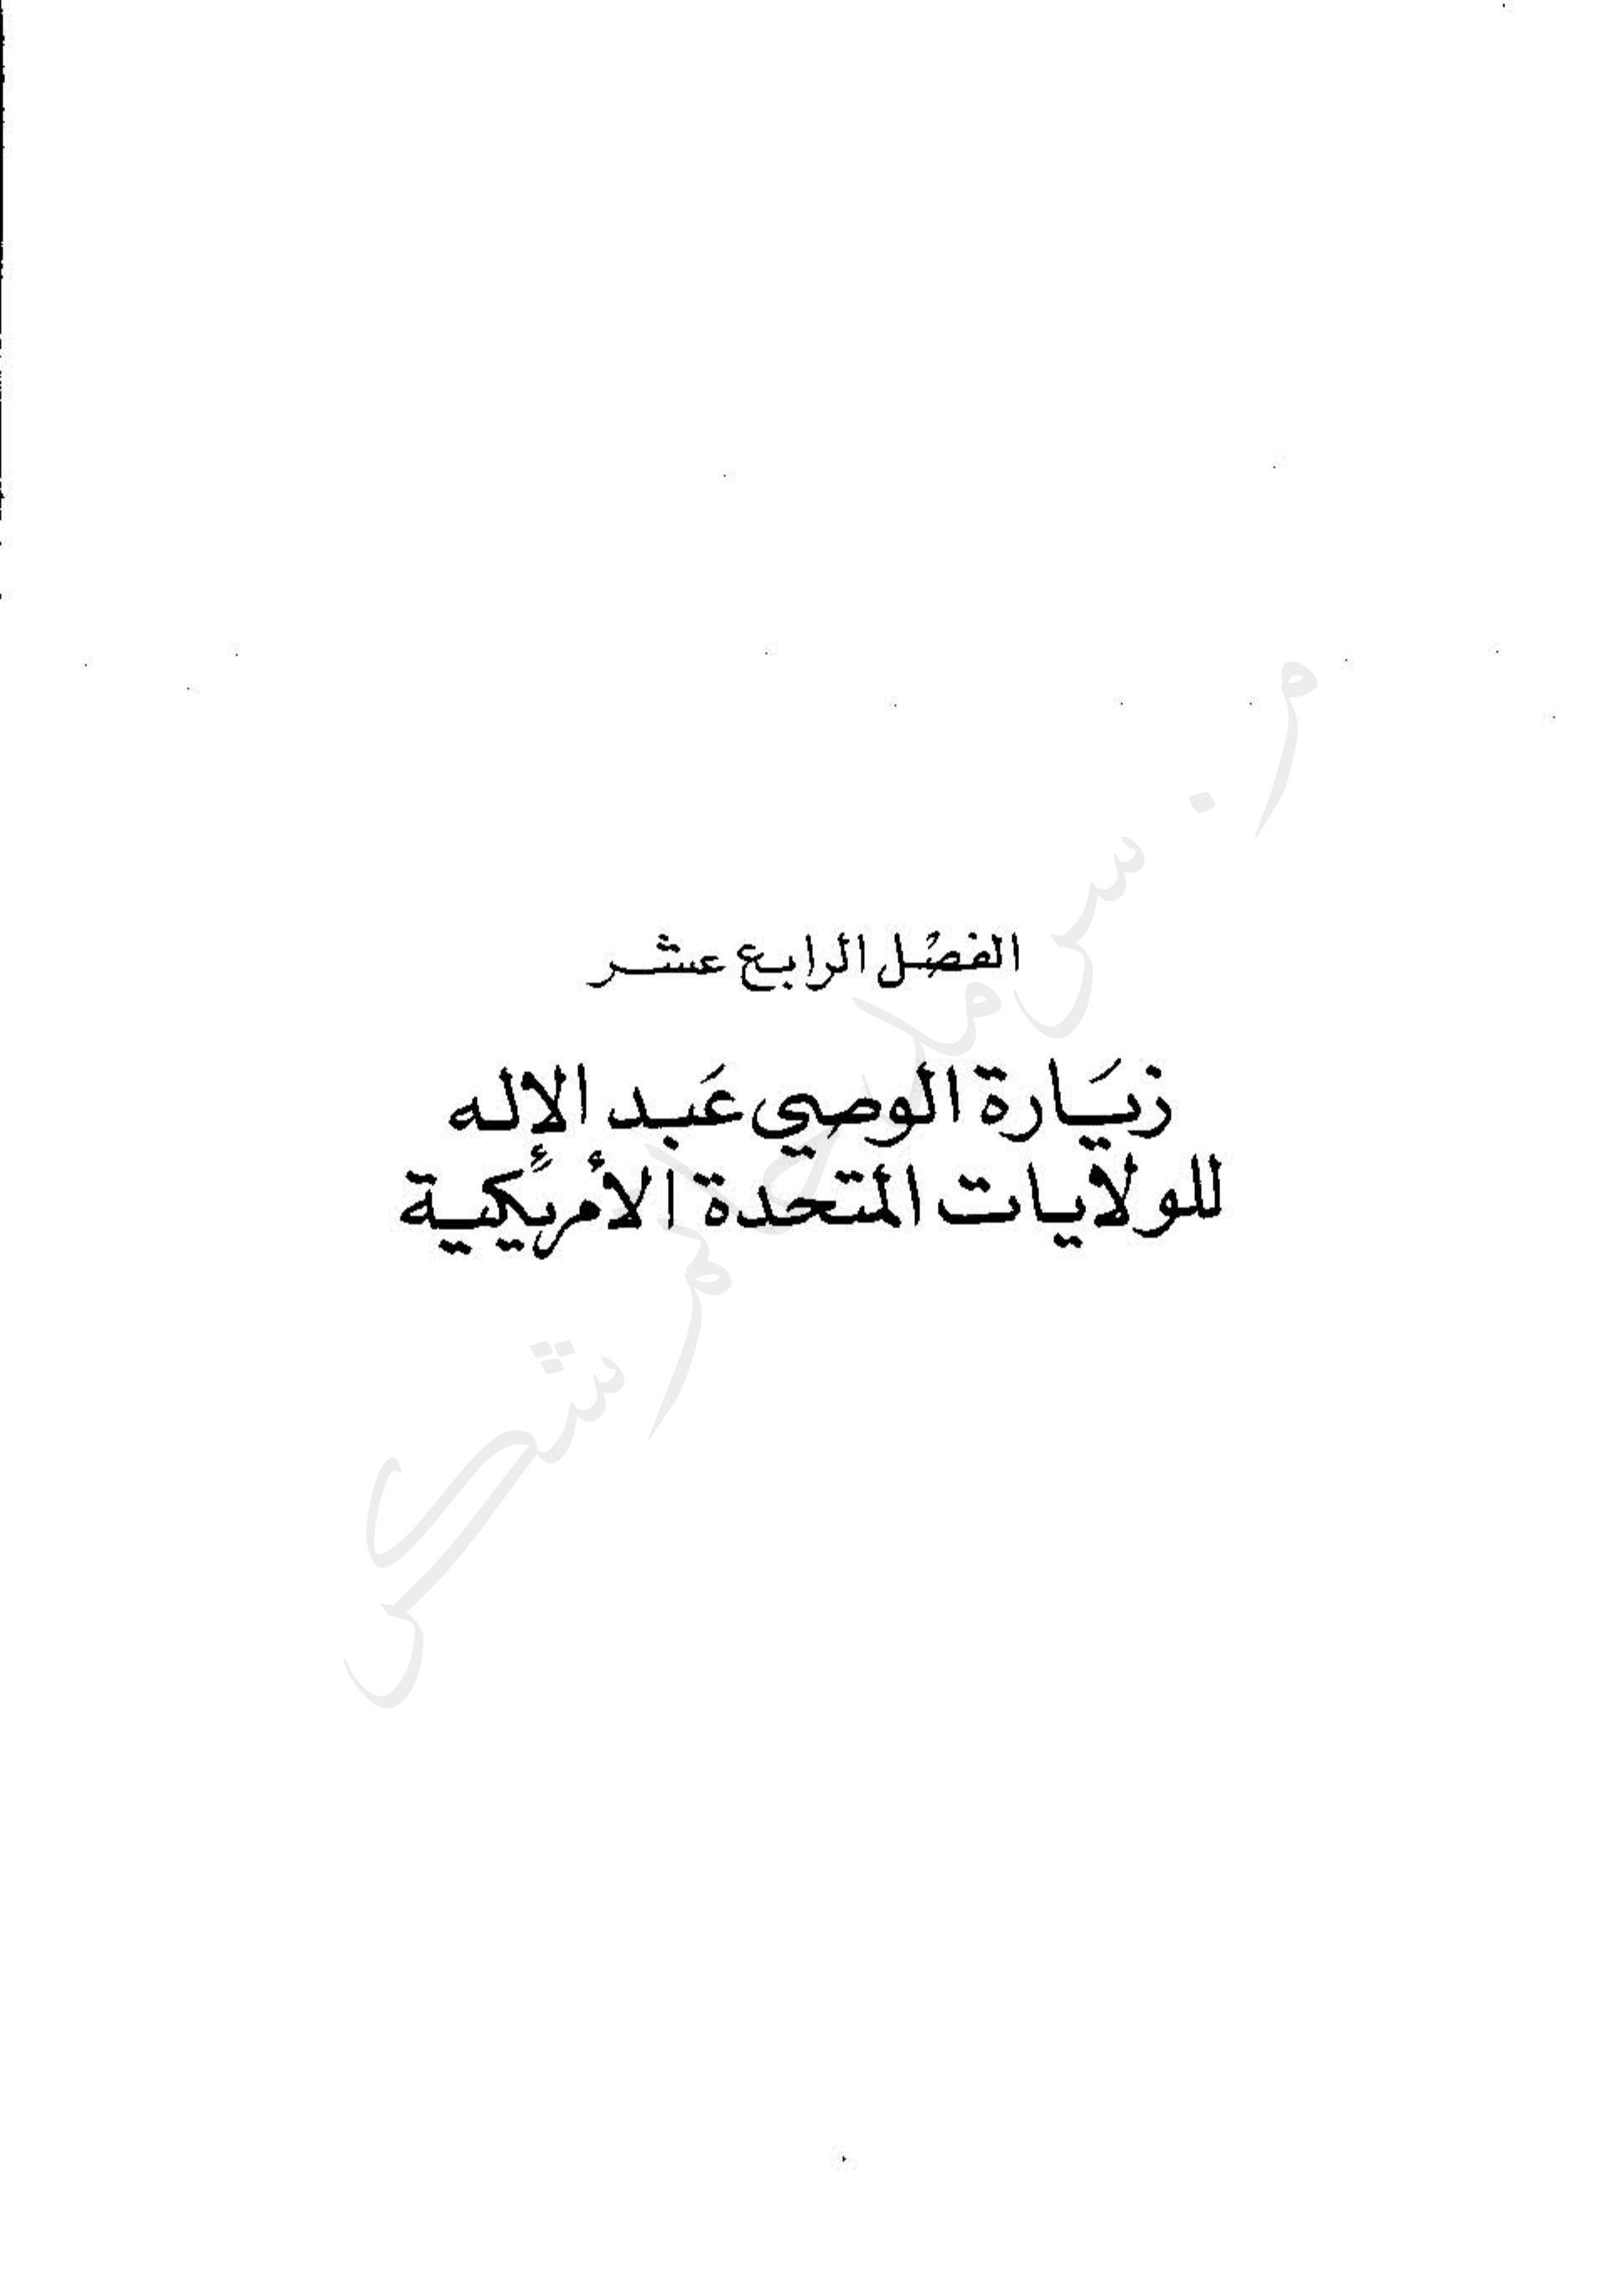 الفصل الرابع عشر
زيَارة الوصي عَبد الاله
للولايات المتحدة الأمريكية